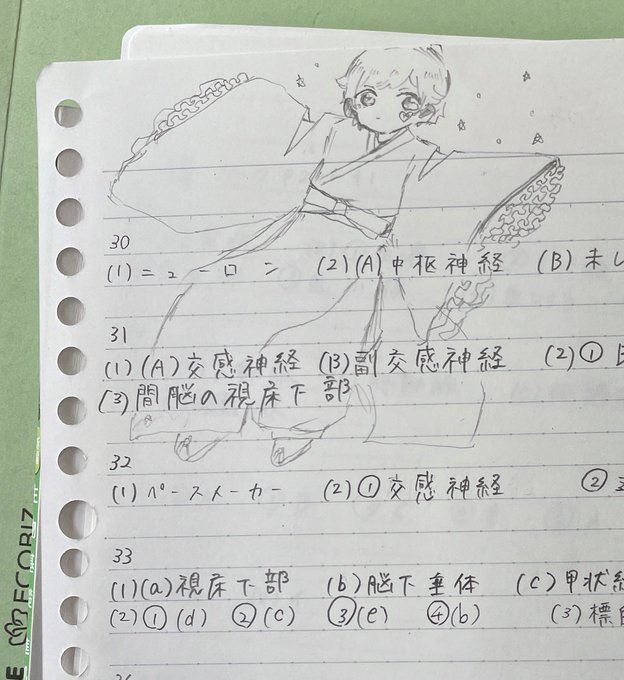 30
(1) ニューロン (2)(A) 中枢神経 (B) 末
31
(1)(A) 交感神経 (B) 副交感神経 (2)①
(3) 間脳の視床下部
32
(1) ペースメーカー (2)①交感神経 ②
33
(1)(a) 視床下部 (b) 脳下垂体 (c) 甲状
(2)①(d) ②(c) ③(e) ④(b) (3) 標
ECORIZ